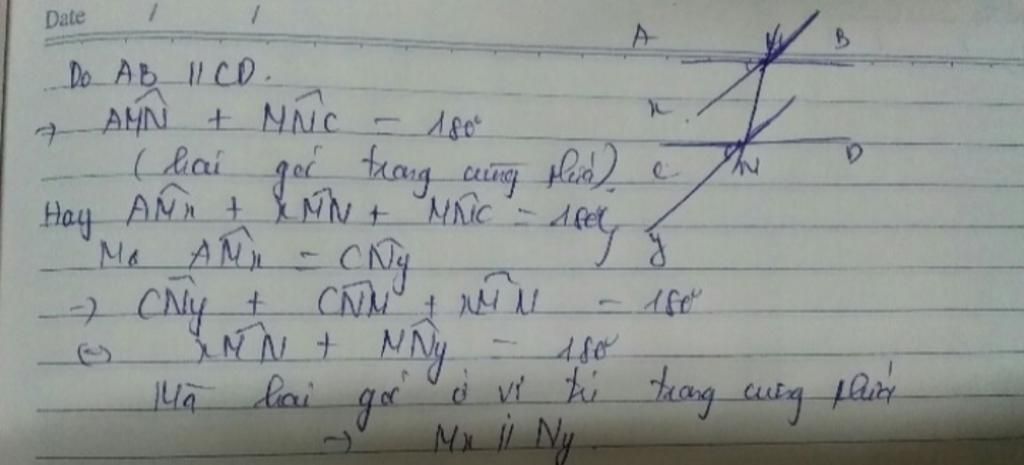 Date / /
A M B
Do AB // CD.
x
→ AM̂N + MN̂C = 180°
C N D
(hai góc trong cùng phía).
Hay AM̂x + xM̂N + MN̂C = 180°
y
Mà AM̂x = CN̂y
→ CN̂y + CN̂M + xM̂N = 180°
⇔ xM̂N + MN̂y = 180°
Mà hai góc ở vị trí trong cùng phía
→ Mx // Ny